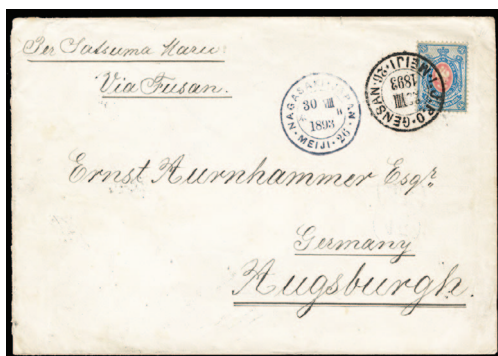 Per Satsuma Maru
Via Fusan.
NAGASAKI JAPAN
30 VIII
1893
MEIJI 26
I.J.P.O. GENSAN
VIII
1893
MEIJI 26
Ernst Aurnhammer Esqr
Germany
Augsburgh.